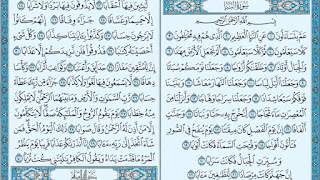 سُورَةُ النَّبَإِ
بِسْمِ اللَّهِ الرَّحْمَٰنِ الرَّحِيمِ
عَمَّ يَتَسَاءَلُونَ عَنِ النَّبَإِ الْعَظِيمِ الَّذِي هُمْ فِيهِ مُخْتَلِفُونَ
كَلَّا سَيَعْلَمُونَ ثُمَّ كَلَّا سَيَعْلَمُونَ أَلَمْ نَجْعَلِ الْأَرْضَ مِهَادًا
وَالْجِبَالَ أَوْتَادًا وَخَلَقْنَاكُمْ أَزْوَاجًا وَجَعَلْنَا نَوْمَكُمْ سُبَاتًا
وَجَعَلْنَا اللَّيْلَ لِبَاسًا وَجَعَلْنَا النَّهَارَ مَعَاشًا وَبَنَيْنَا
فَوْقَكُمْ سَبْعًا شِدَادًا وَجَعَلْنَا سِرَاجًا وَهَّاجًا وَأَنْزَلْنَا
مِنَ الْمُعْصِرَاتِ مَاءً ثَجَّاجًا لِنُخْرِجَ بِهِ حَبًّا وَنَبَاتًا
وَجَنَّاتٍ أَلْفَافًا إِنَّ يَوْمَ الْفَصْلِ كَانَ مِيقَاتًا يَوْمَ يُنْفَخُ فِي الصُّورِ
فَتَأْتُونَ أَفْوَاجًا وَفُتِحَتِ السَّمَاءُ فَكَانَتْ أَبْوَابًا
وَسُيِّرَتِ الْجِبَالُ فَكَانَتْ سَرَابًا
إِنَّ جَهَنَّمَ كَانَتْ مِرْصَادًا لِلطَّاغِينَ مَآبًا
لَابِثِينَ فِيهَا أَحْقَابًا لَا يَذُوقُونَ فِيهَا بَرْدًا وَلَا شَرَابًا
إِلَّا حَمِيمًا وَغَسَّاقًا جَزَاءً وِفَاقًا إِنَّهُمْ كَانُوا
لَا يَرْجُونَ حِسَابًا وَكَذَّبُوا بِآيَاتِنَا كِذَّابًا وَكُلَّ شَيْءٍ
أَحْصَيْنَاهُ كِتَابًا فَذُوقُوا فَلَنْ نَزِيدَكُمْ إِلَّا عَذَابًا إِنَّ لِلْمُتَّقِينَ
مَفَازًا حَدَائِقَ وَأَعْنَابًا وَكَوَاعِبَ أَتْرَابًا وَكَأْسًا
دِهَاقًا لَا يَسْمَعُونَ فِيهَا لَغْوًا وَلَا كِذَّابًا جَزَاءً مِنْ رَبِّكَ عَطَاءً
حِسَابًا رَبِّ السَّمَاوَاتِ وَالْأَرْضِ وَمَا بَيْنَهُمَا الرَّحْمَٰنِ لَا يَمْلِكُونَ
مِنْهُ خِطَابًا يَوْمَ يَقُومُ الرُّوحُ وَالْمَلَائِكَةُ صَفًّا لَا يَتَكَلَّمُونَ
إِلَّا مَنْ أَذِنَ لَهُ الرَّحْمَٰنُ وَقَالَ صَوَابًا ذَٰلِكَ الْيَوْمُ الْحَقُّ فَمَنْ
شَاءَ اتَّخَذَ إِلَىٰ رَبِّهِ مَآبًا إِنَّا أَنْذَرْنَاكُمْ عَذَابًا قَرِيبًا يَوْمَ
يَنْظُرُ الْمَرْءُ مَا قَدَّمَتْ يَدَاهُ وَيَقُولُ الْكَافِرُ يَا لَيْتَنِي كُنْتُ تُرَابًا